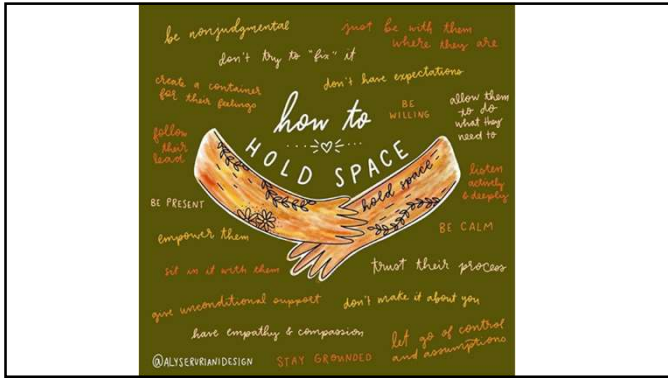 be nonjudgmental
just be with them
where they are
don't try to "fix" it
don't have expectations
create a container
for their feelings
BE
WILLING
allow them
to do
what they
need to
how to
HOLD SPACE
follow
their
lead
hold space
listen
actively
& deeply
BE PRESENT
BE CALM
empower them
sit in it with them
trust their process
give unconditional support
don't make it about you
have empathy & compassion
let go of control
and assumptions
@ALYSERURIANIDESIGN
STAY GROUNDED